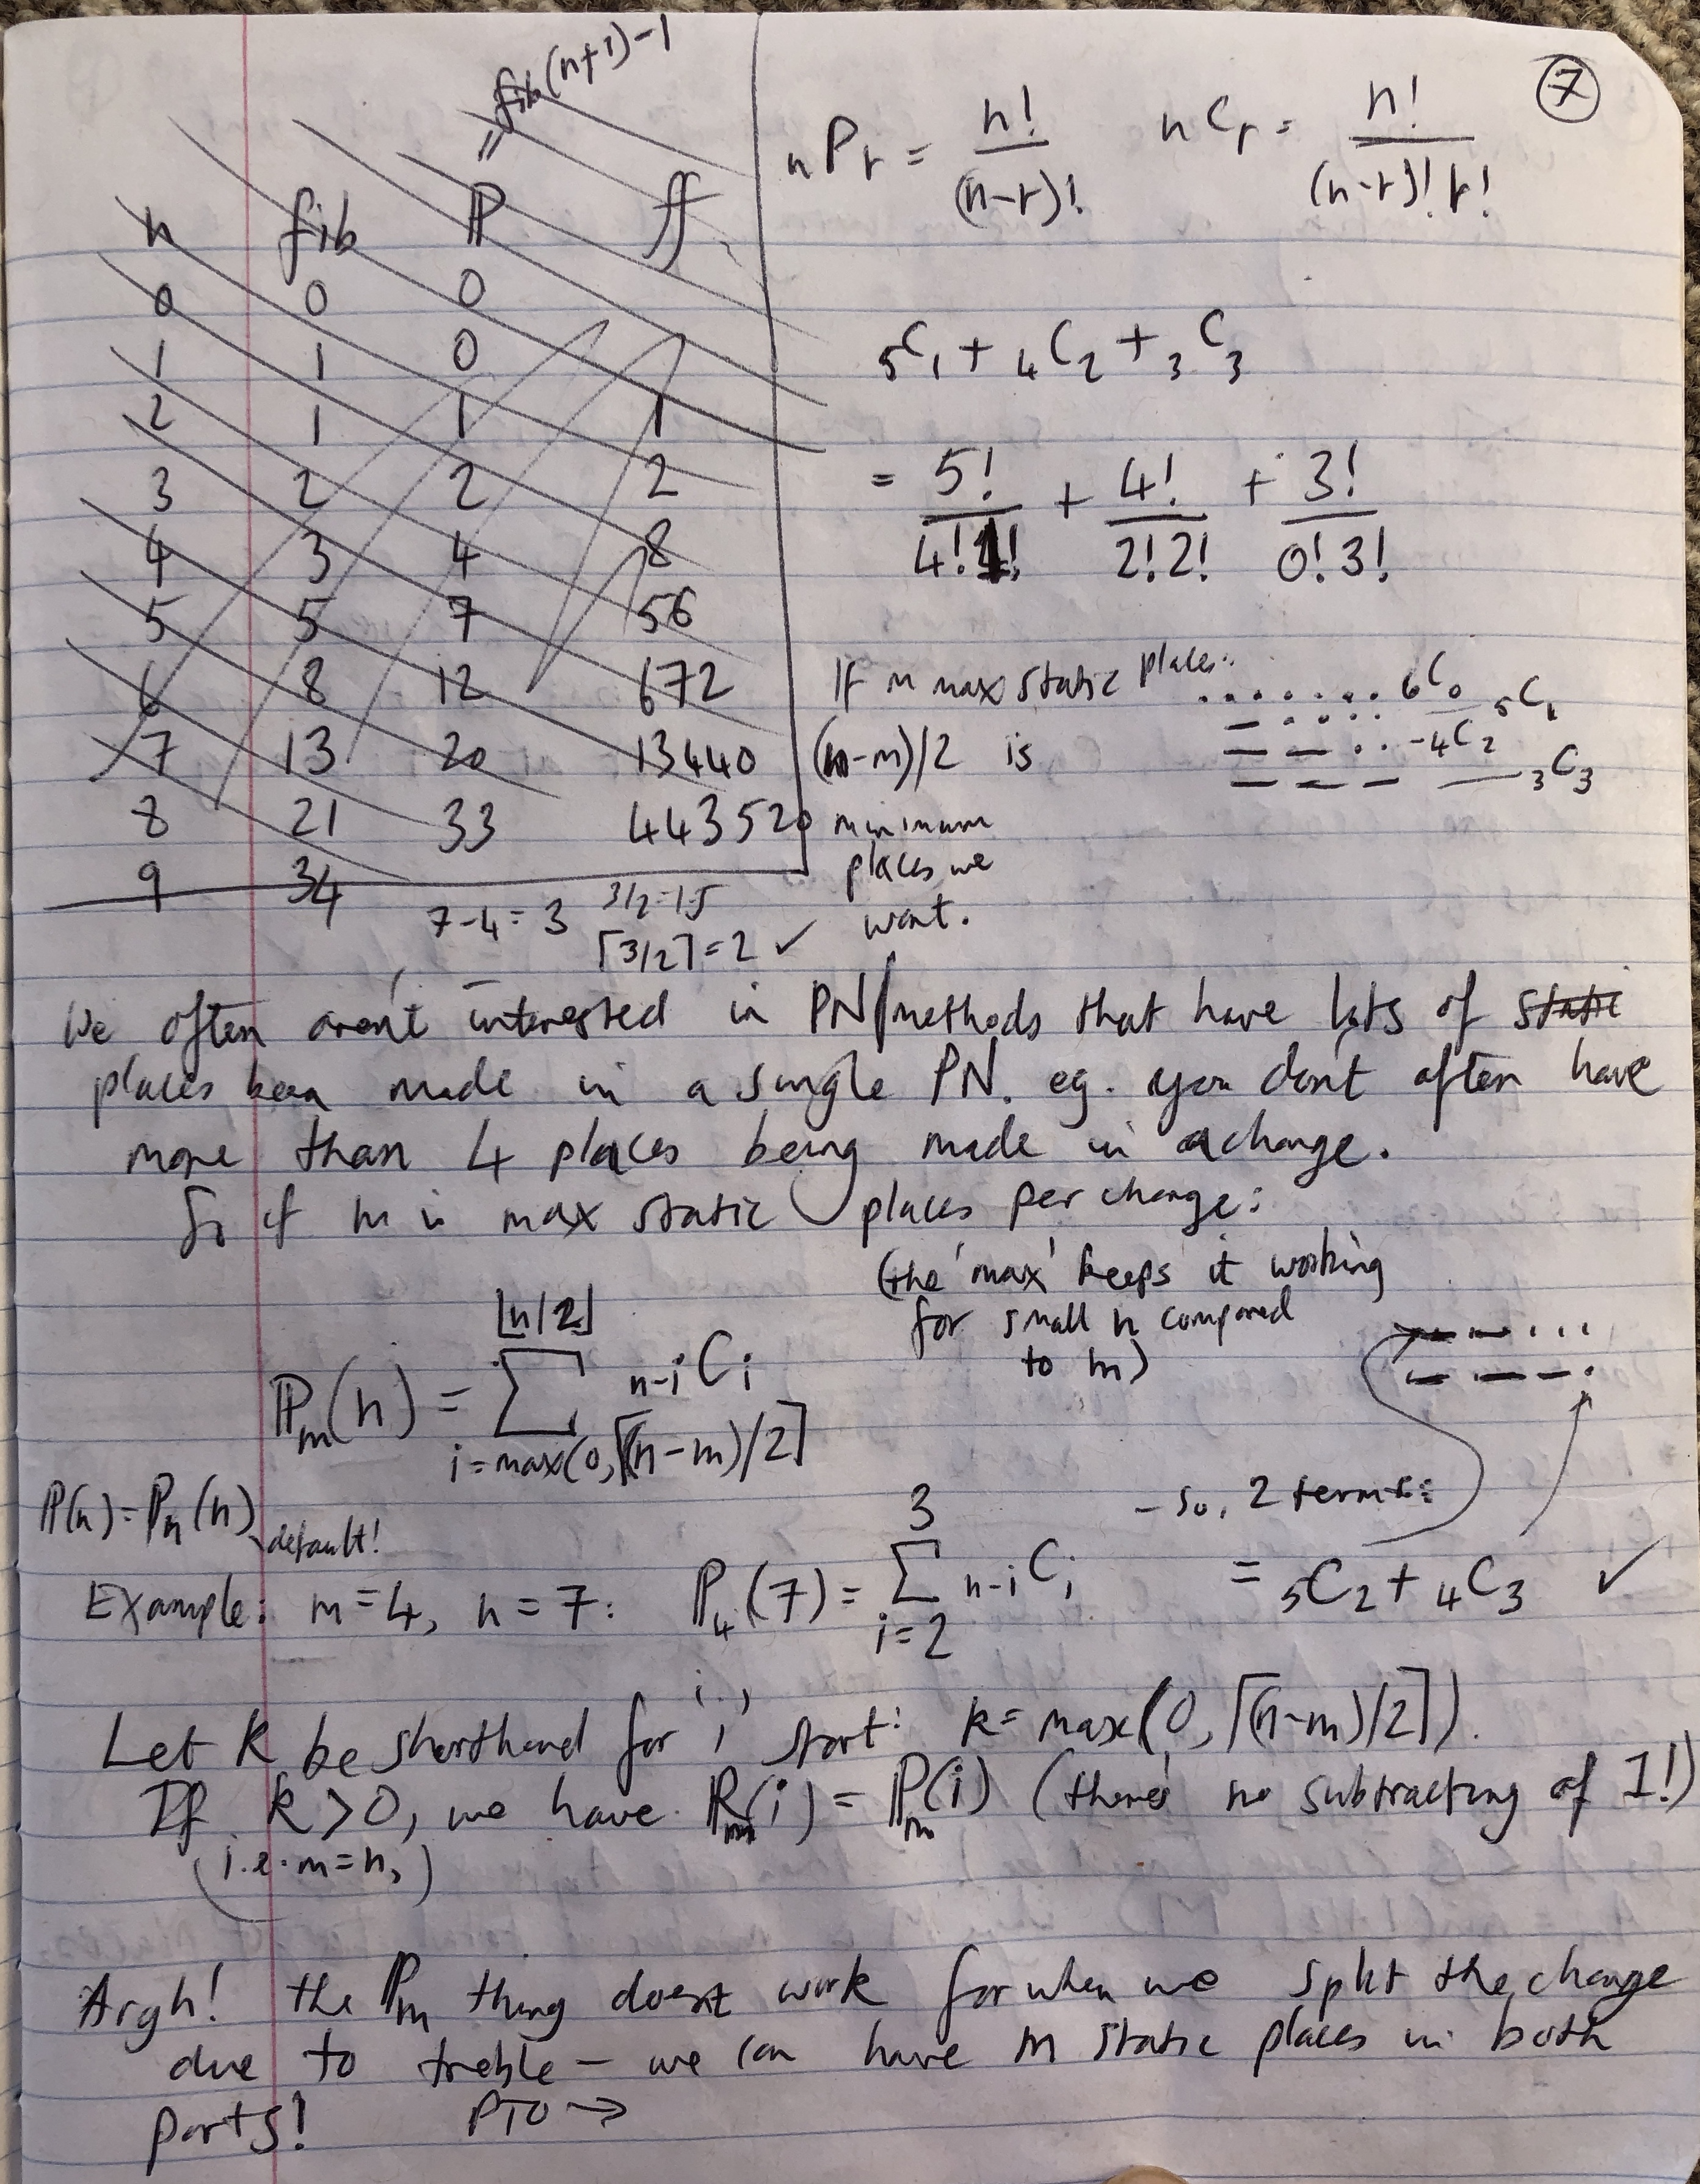 = fib(n+1)-1
⑦
nPr = n!/(n-r)!   nCr = n!/(n-r)!r!
n fib ℙ ff
0 0 0
1 1 0
2 1 1 1
3 2 2 2
4 3 4 8
5 5 7 56
6 8 12 672
7 13 20 13440
8 21 33 443520
9 34
₅C₁ + ₄C₂ + ₃C₃
= 5!/4!1! + 4!/2!2! + 3!/0!3!
If m max static places..
(n-m)/2 is
minimum
places we
want.
. . . . . . 6C₀
– . . . . ₅C₁
– – . . - ₄C₂
– – – — ₃C₃
7-4 = 3   3/2=1.5
⌈3/2⌉=2 ✓
We often aren't interested in PN/methods that have lots of static
places been made in a single PN. eg. you don't often have
more than 4 places being made in a change.
So if m is max static places per change:
(the 'max' keeps it working
for small n compared
to m)
– – . . .
– – – .
ℙₘ(n) = ∑ n-iCi
⌊n/2⌋
i=max(0,⌈(n-m)/2⌉
ℙ(n) = ℙₙ(n) default!
- so, 2 terms:
Example: m=4, n=7: ℙ₄(7) = ∑ n-iCi = ₅C₂ + ₄C₃ ✓
3
i=2
Let k be shorthand for 'i' start: k= max(0, ⌈(n-m)/2⌉).
If k>0, we have ℙₘ(i) = ℙₘ(i) (there's no subtracting of 1!)
(i.e. m=n,)
Argh! the ℙₘ thing doesn't work for when we split the change
due to treble – we can have m static places in both
parts! PTO →